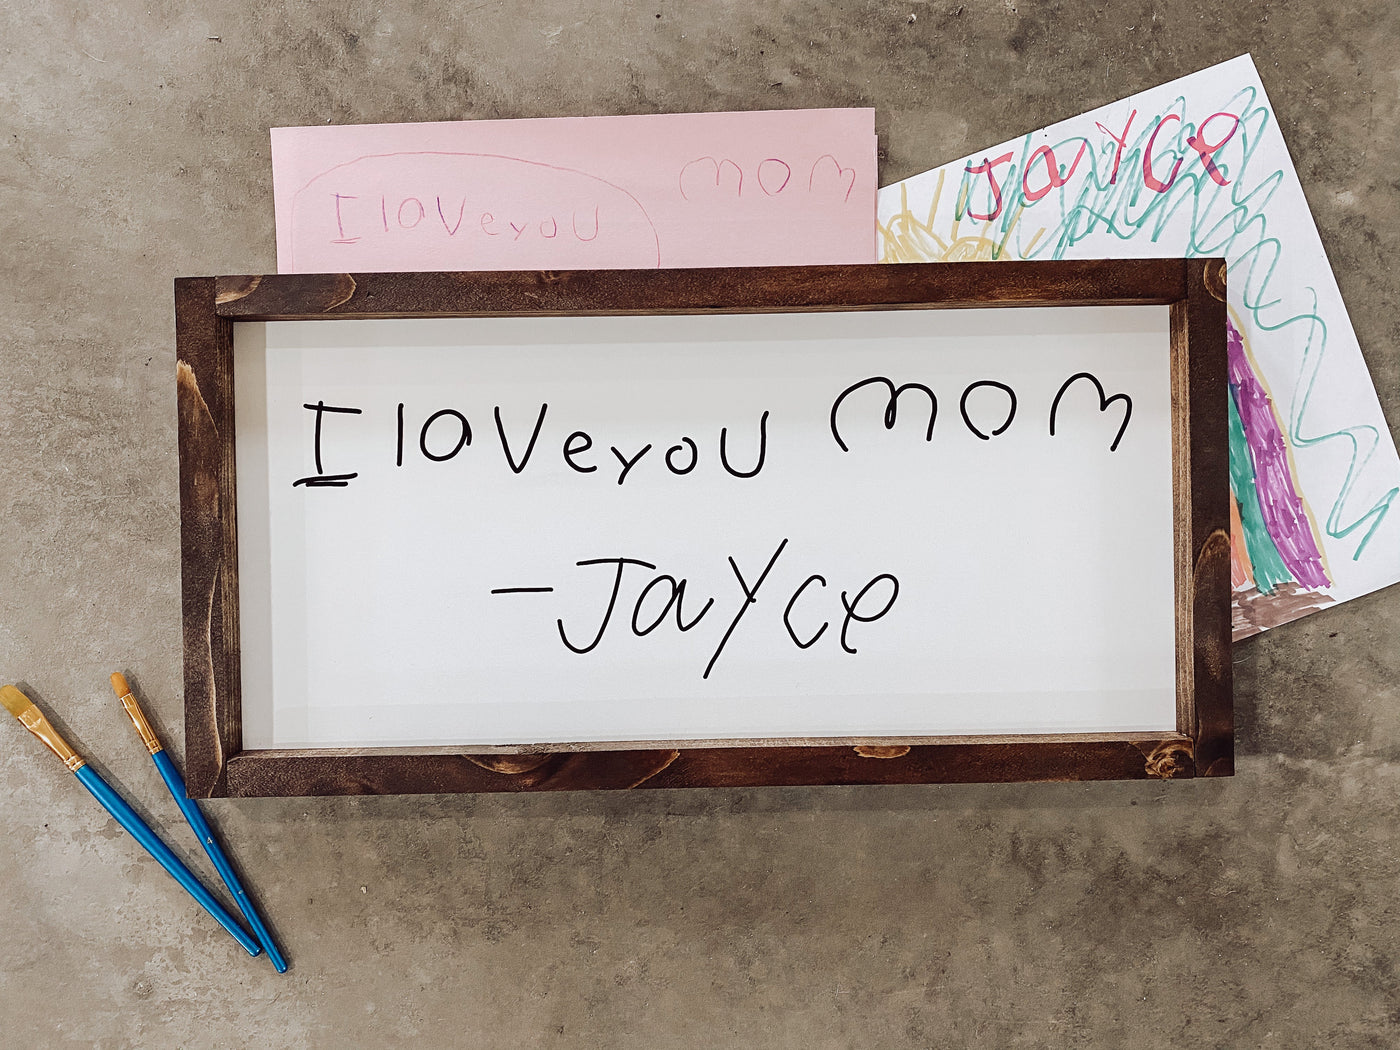 I loveyou mom
Jayce
I loveyou mom
-Jayce